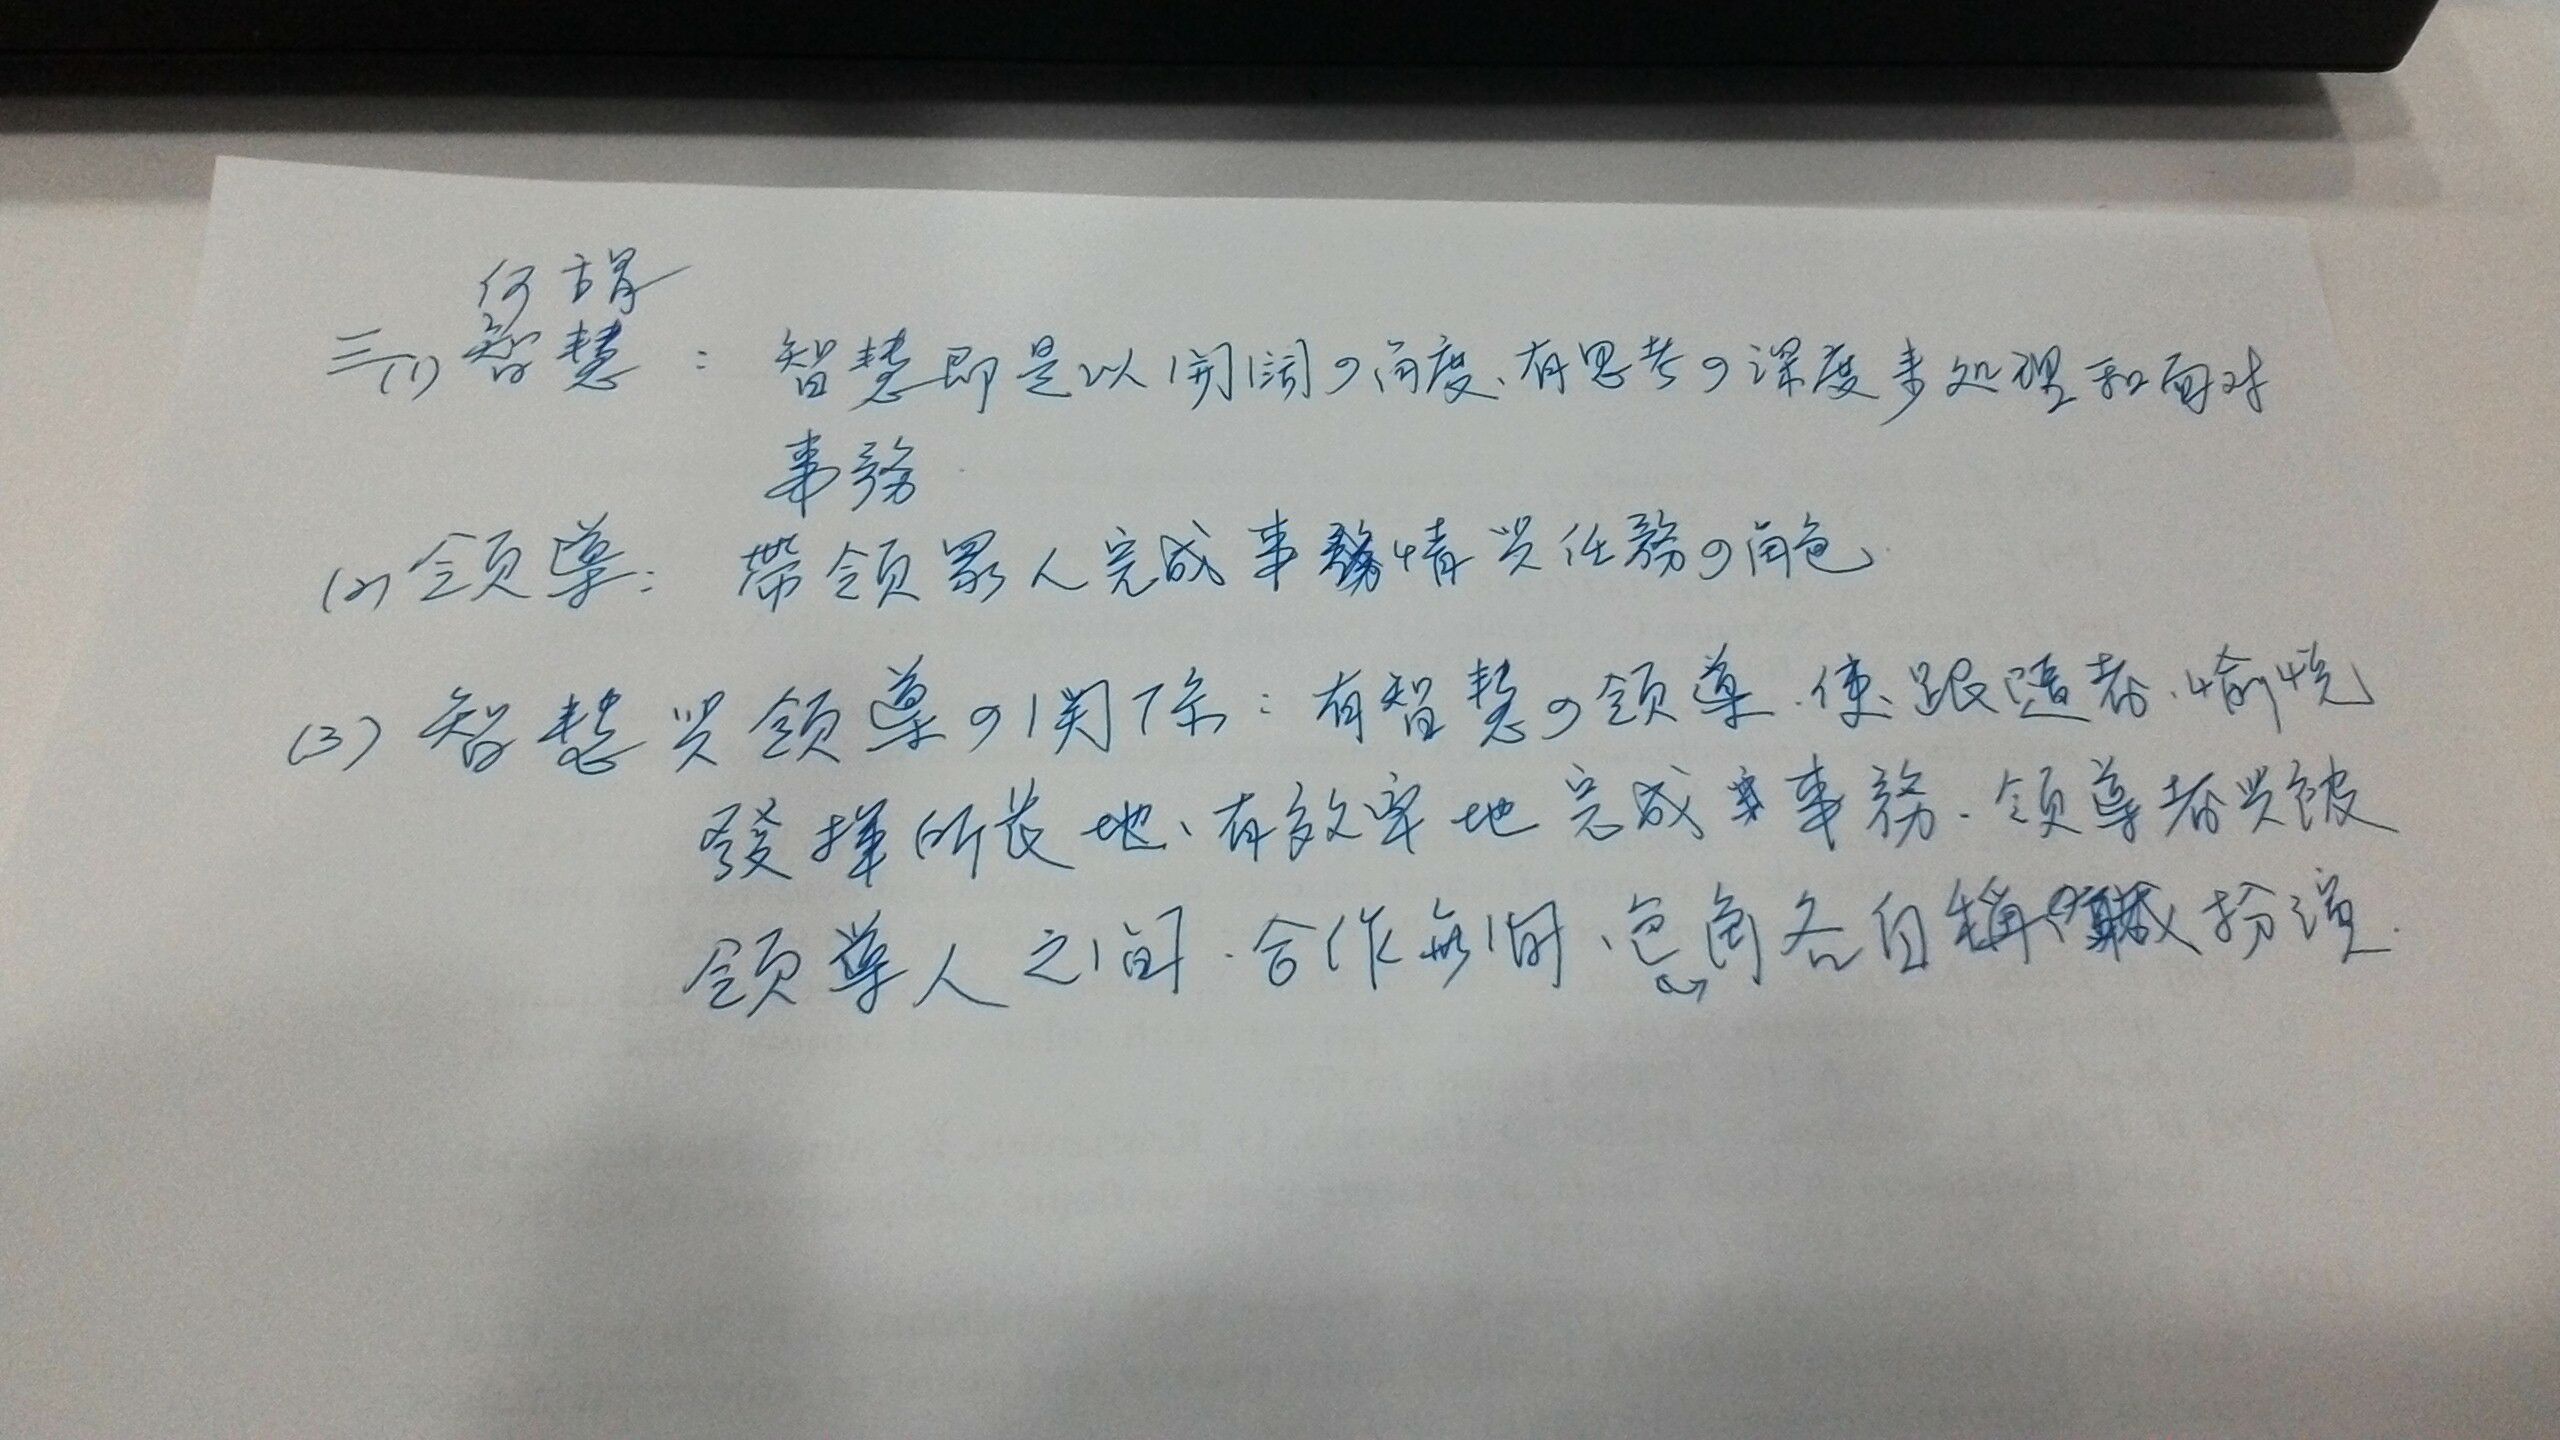 何謂
三(1)智慧：智慧即是以開闊的角度、有思考的深度來處理和面對
事務
(2)領導：帶領眾人完成事情與任務的角色
(3)智慧與領導的關係：有智慧的領導，使跟隨者，愉悅
發揮所長地、有效率地完成事務．領導者與被
領導人之間．合作無間、色角各自稱職扮演．